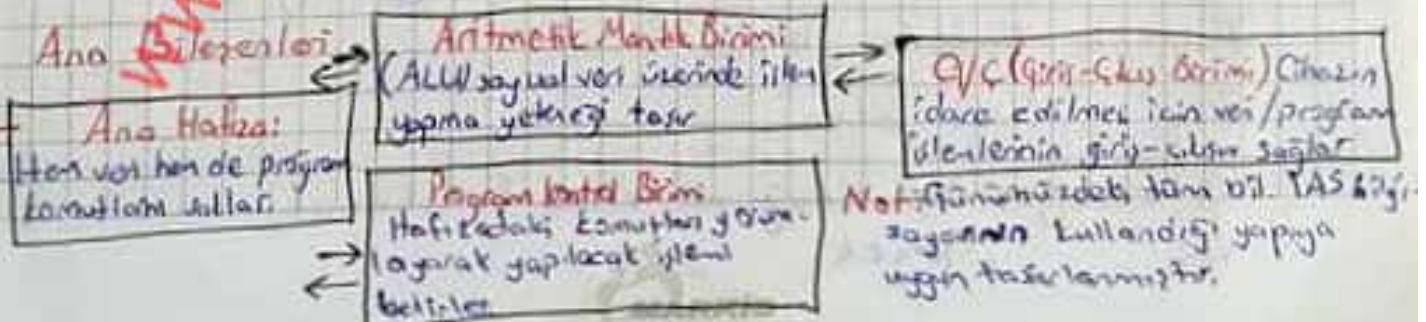 Ana Bileşenleri
Ana Hafıza:
Hem veri hem de program
komutlarını saklar.
Aritmetik Mantık Birimi
(ALU) sayısal veri üzerinde işlem
yapma yeteneği taşır
Program kontrol Birimi
Hafızadaki komutları yorum-
layarak yapılacak işlemi
belirler
G/Ç (Giriş-Çıkış Birimi) Cihazın
idare edilmesi için veri/program
işlemlerinin giriş-çıkışını sağlar
Not: Günümüzdeki tüm bil. IAS bilgi
sayarının kullandığı yapıya
uygun tasarlanmıştır.